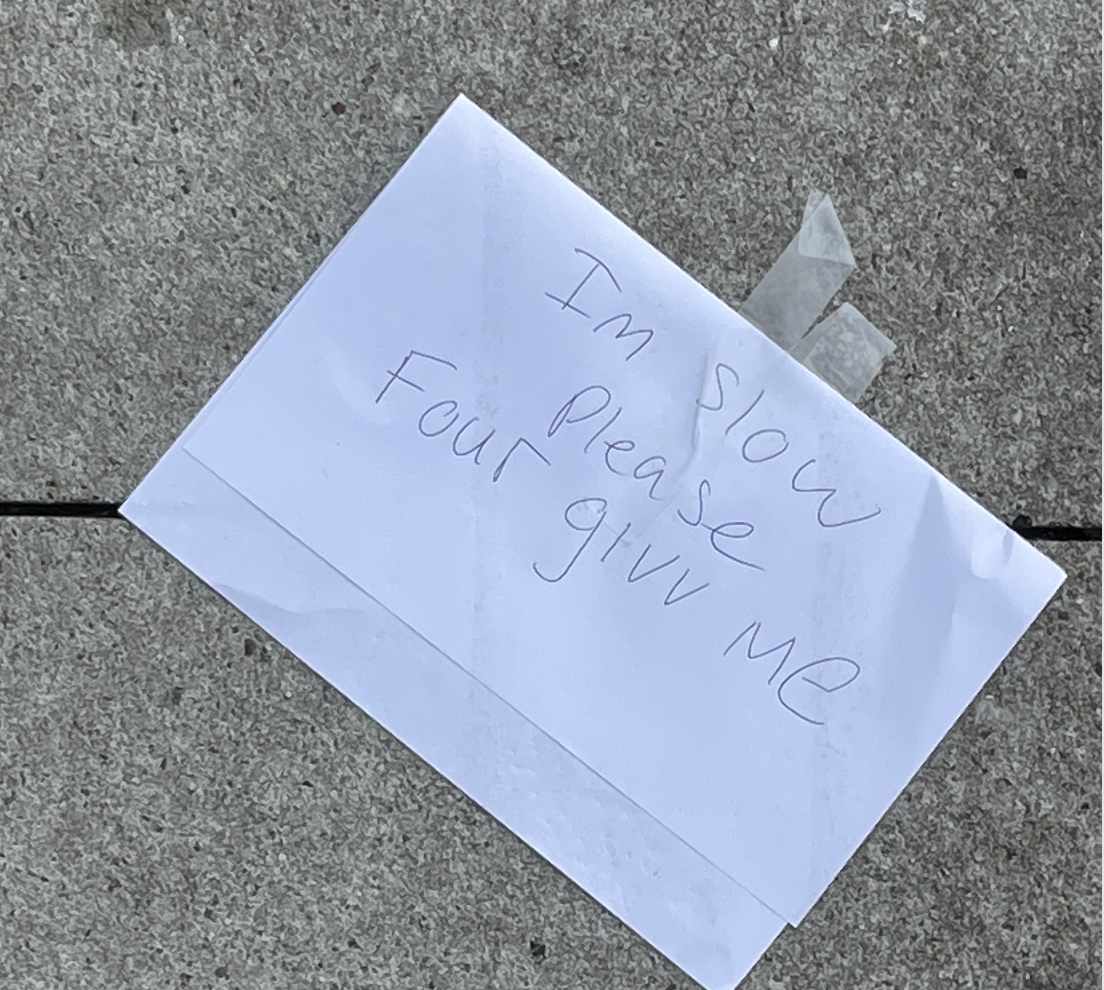 Im slow
Please
Four givv ME